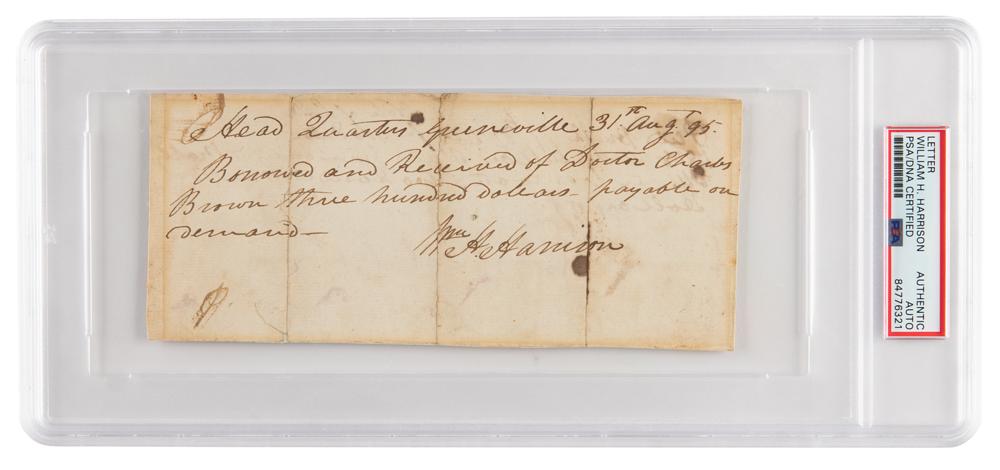 Head Quarters Greeneville 31st Augt 95.
Borrowed and Received of Doctor Charles
Brown three hundred dollars payable on
demand—
Wm H. Harrison
LETTER
WILLIAM H. HARRISON
PSA/DNA CERTIFIED
PSA
AUTHENTIC
AUTO
84776321